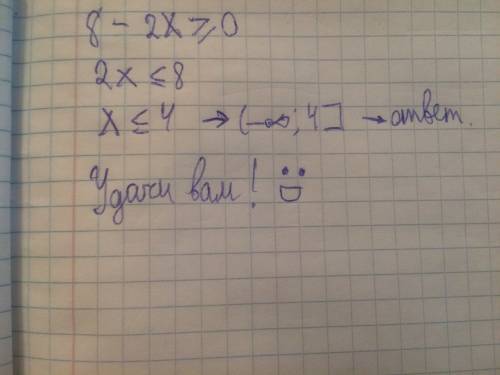 8 - 2x ≥ 0
2x ≤ 8
x ≤ 4 → (-∞; 4] → ответ.
Удачи вам!